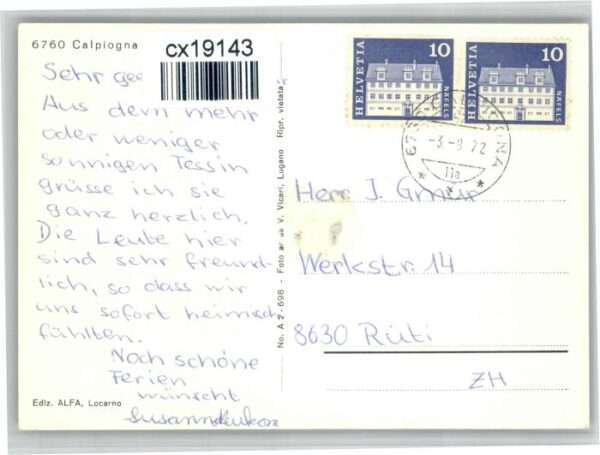 6760 Calpiogna
cx19143
Sehr
Aus dem mehr
oder weniger
sonnigen Tessin
grüsse ich sie
ganz herzlich.
Die Leute hier
sind sehr freund-
lich, so dass wir
uns sofort heimisch
fühlten.
Noch schöne
Ferien
wünscht
Ediz. ALFA, Locarno
No. A 2-698 - Foto V. Vicari, Lugano Ripr. vietata
HELVETIA 10
NÄFELS
HELVETIA 10
NÄFELS
-3.-8.72
11a
Herr J. Gmür
Werkstr. 14
8630 Rüti
ZH